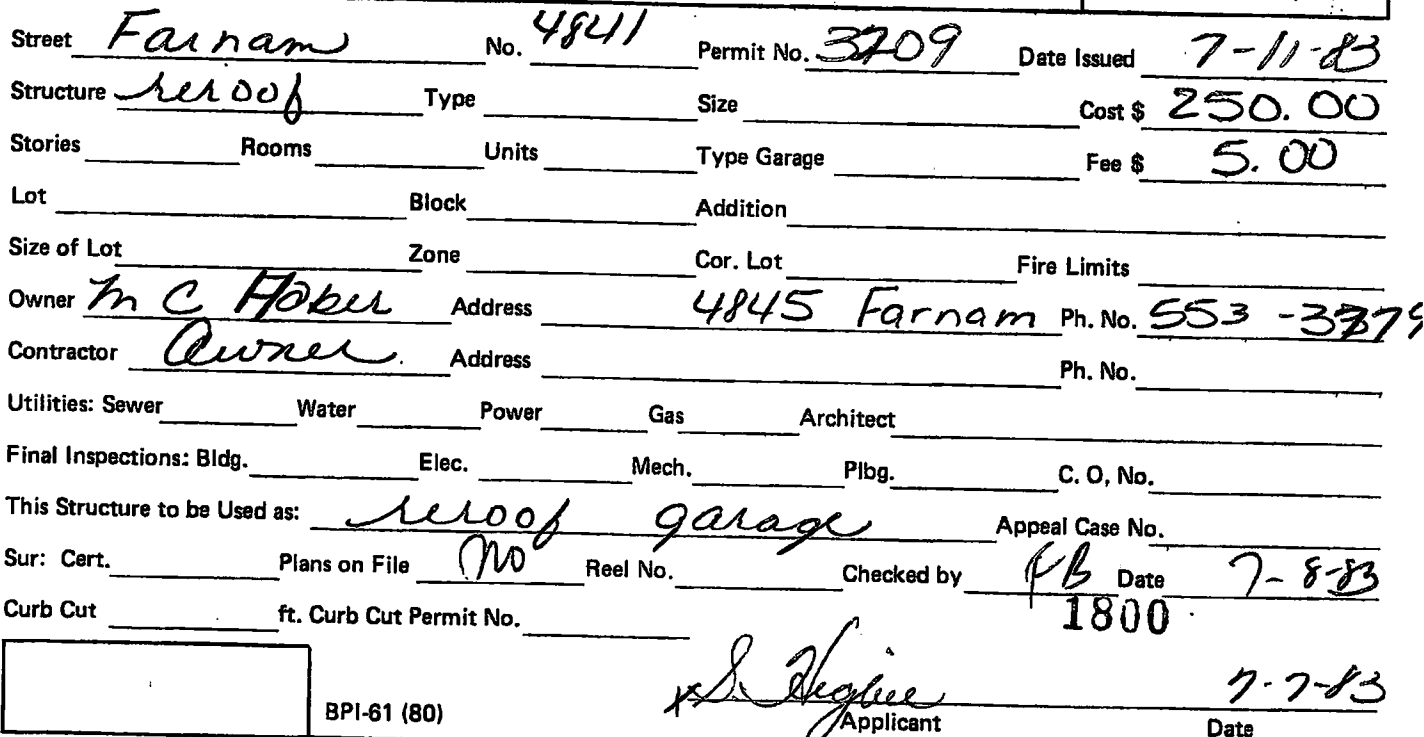 Street Farnam No. 4841 Permit No. 3209 Date Issued 7-11-83
Structure reroof Type Size Cost $ 250.00
Stories Rooms Units Type Garage Fee $ 5.00
Lot Block Addition
Size of Lot Zone Cor. Lot Fire Limits
Owner M C Hober Address 4845 Farnam Ph. No. 553-3379
Contractor Owner. Address Ph. No.
Utilities: Sewer Water Power Gas Architect
Final Inspections: Bldg. Elec. Mech. Plbg. C. O, No.
This Structure to be Used as: reroof garage Appeal Case No.
Sur: Cert. Plans on File no Reel No. Checked by Date 7-8-83
Curb Cut ft. Curb Cut Permit No. 1800
x S. Higbee 7-7-83
BPI-61 (80) Applicant Date